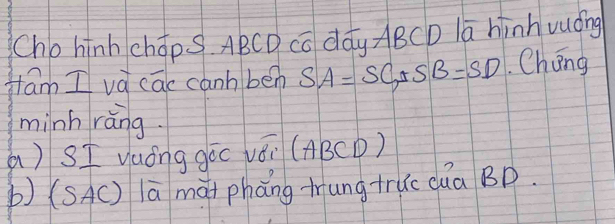 Cho hình chóp S.ABCD có đáy ABCD là hình vuông
tâm I và các cạnh bên SA = SC, SB = SD. Chứng
minh rằng.
a) SI vuông góc với (ABCD)
b) (SAC) là mặt phẳng trung trực của BD.